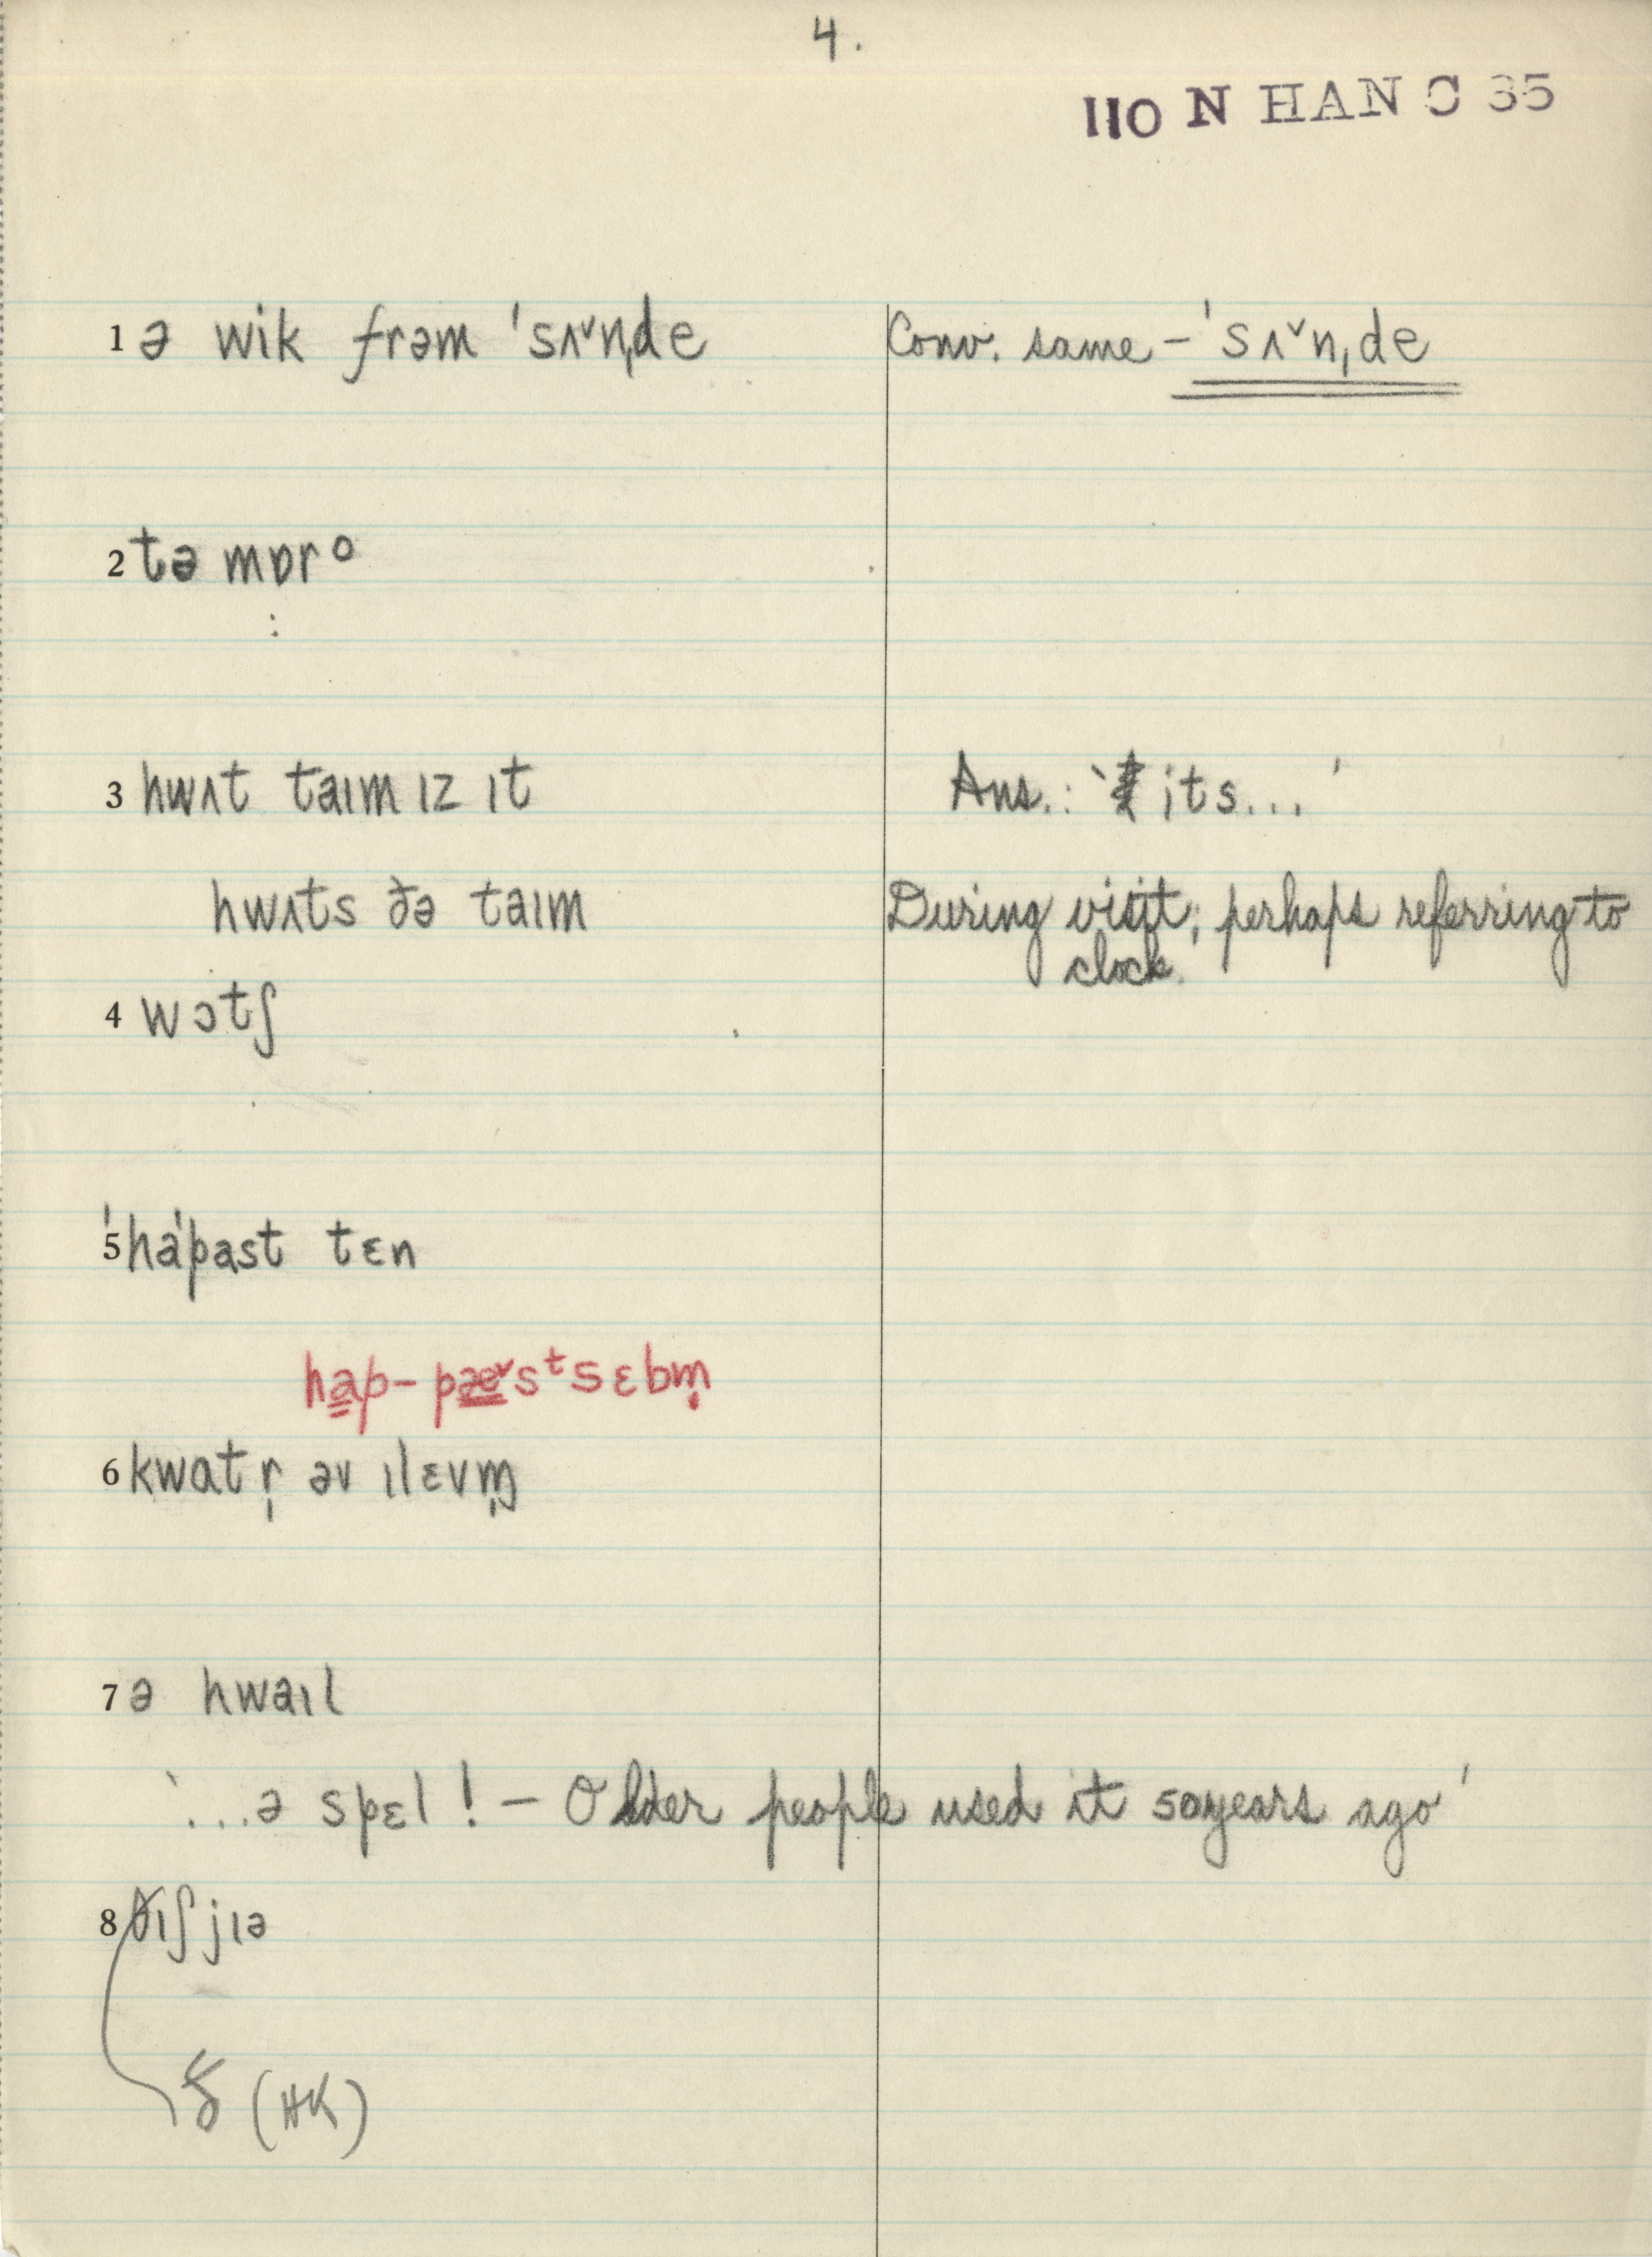 4.
110 N HAN C 35
1 ə wik frəm ˈsʌ˅nˌde
Conv. same – ˈsʌ˅nˌde
2 tə mɒrᵒ
3 hwʌt taɪm ɪz ɪt
Ans.: ‘its...’
hwʌts ðə taɪm
During visit; perhaps referring to
clock.
4 wɔtʃ
5 ˈhaˈpast tɛn
hap-pæ˅sᵗsɛbm̩
6 kwɑtr̩ əv ɪlɛvɱ̩
7 ə hwaɪl
‘...ə spɛl! – Older people used it 50 years ago’
8 ðɪʃ jɪə
ẟ (HK)